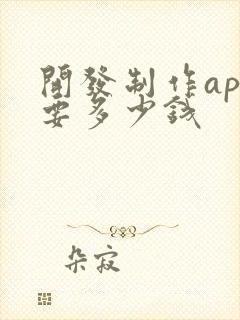 開發制作ap
要多少錢
朵寂